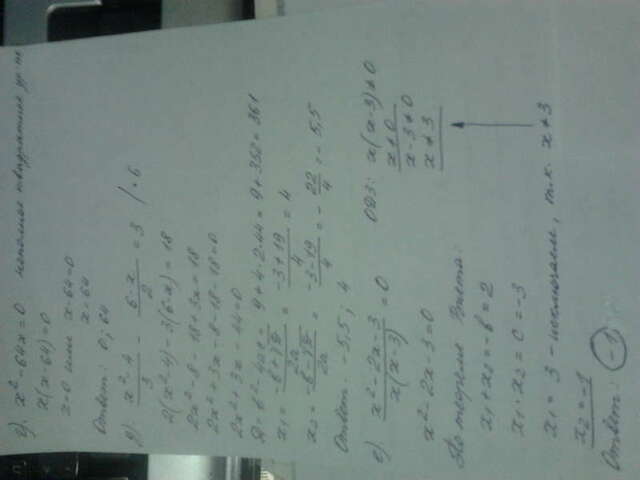 г). x² - 64x = 0 неполное квадратное ур-ие
x(x-64) = 0
x=0 или x-64=0
x=64
Ответ: 0; 64
д). (x²-4)/3 - (6-x)/2 = 3 / ·6
2(x²-4) - 3(6-x) = 18
2x² - 8 - 18 + 3x = 18
2x² + 3x - 8 - 18 - 18 = 0
2x² + 3x - 44 = 0
D = b² - 4ac = 9 + 4·2·44 = 9 + 352 = 361
x₁ = (-b+√D)/2a = (-3+19)/4 = 4
x₂ = (-b-√D)/2a = (-3-19)/4 = -22/4 = -5,5
Ответ: -5,5; 4
е) (x²-2x-3)/(x(x-3)) = 0 ОДЗ: x(x-3)≠0
x≠0
x-3≠0
x²-2x-3=0 x≠3
По теореме Виета:
x₁+x₂ = -b = 2
x₁·x₂ = c = -3
x₁ = 3 - исключаем, т.к. x≠3
x₂ = -1
Ответ: -1